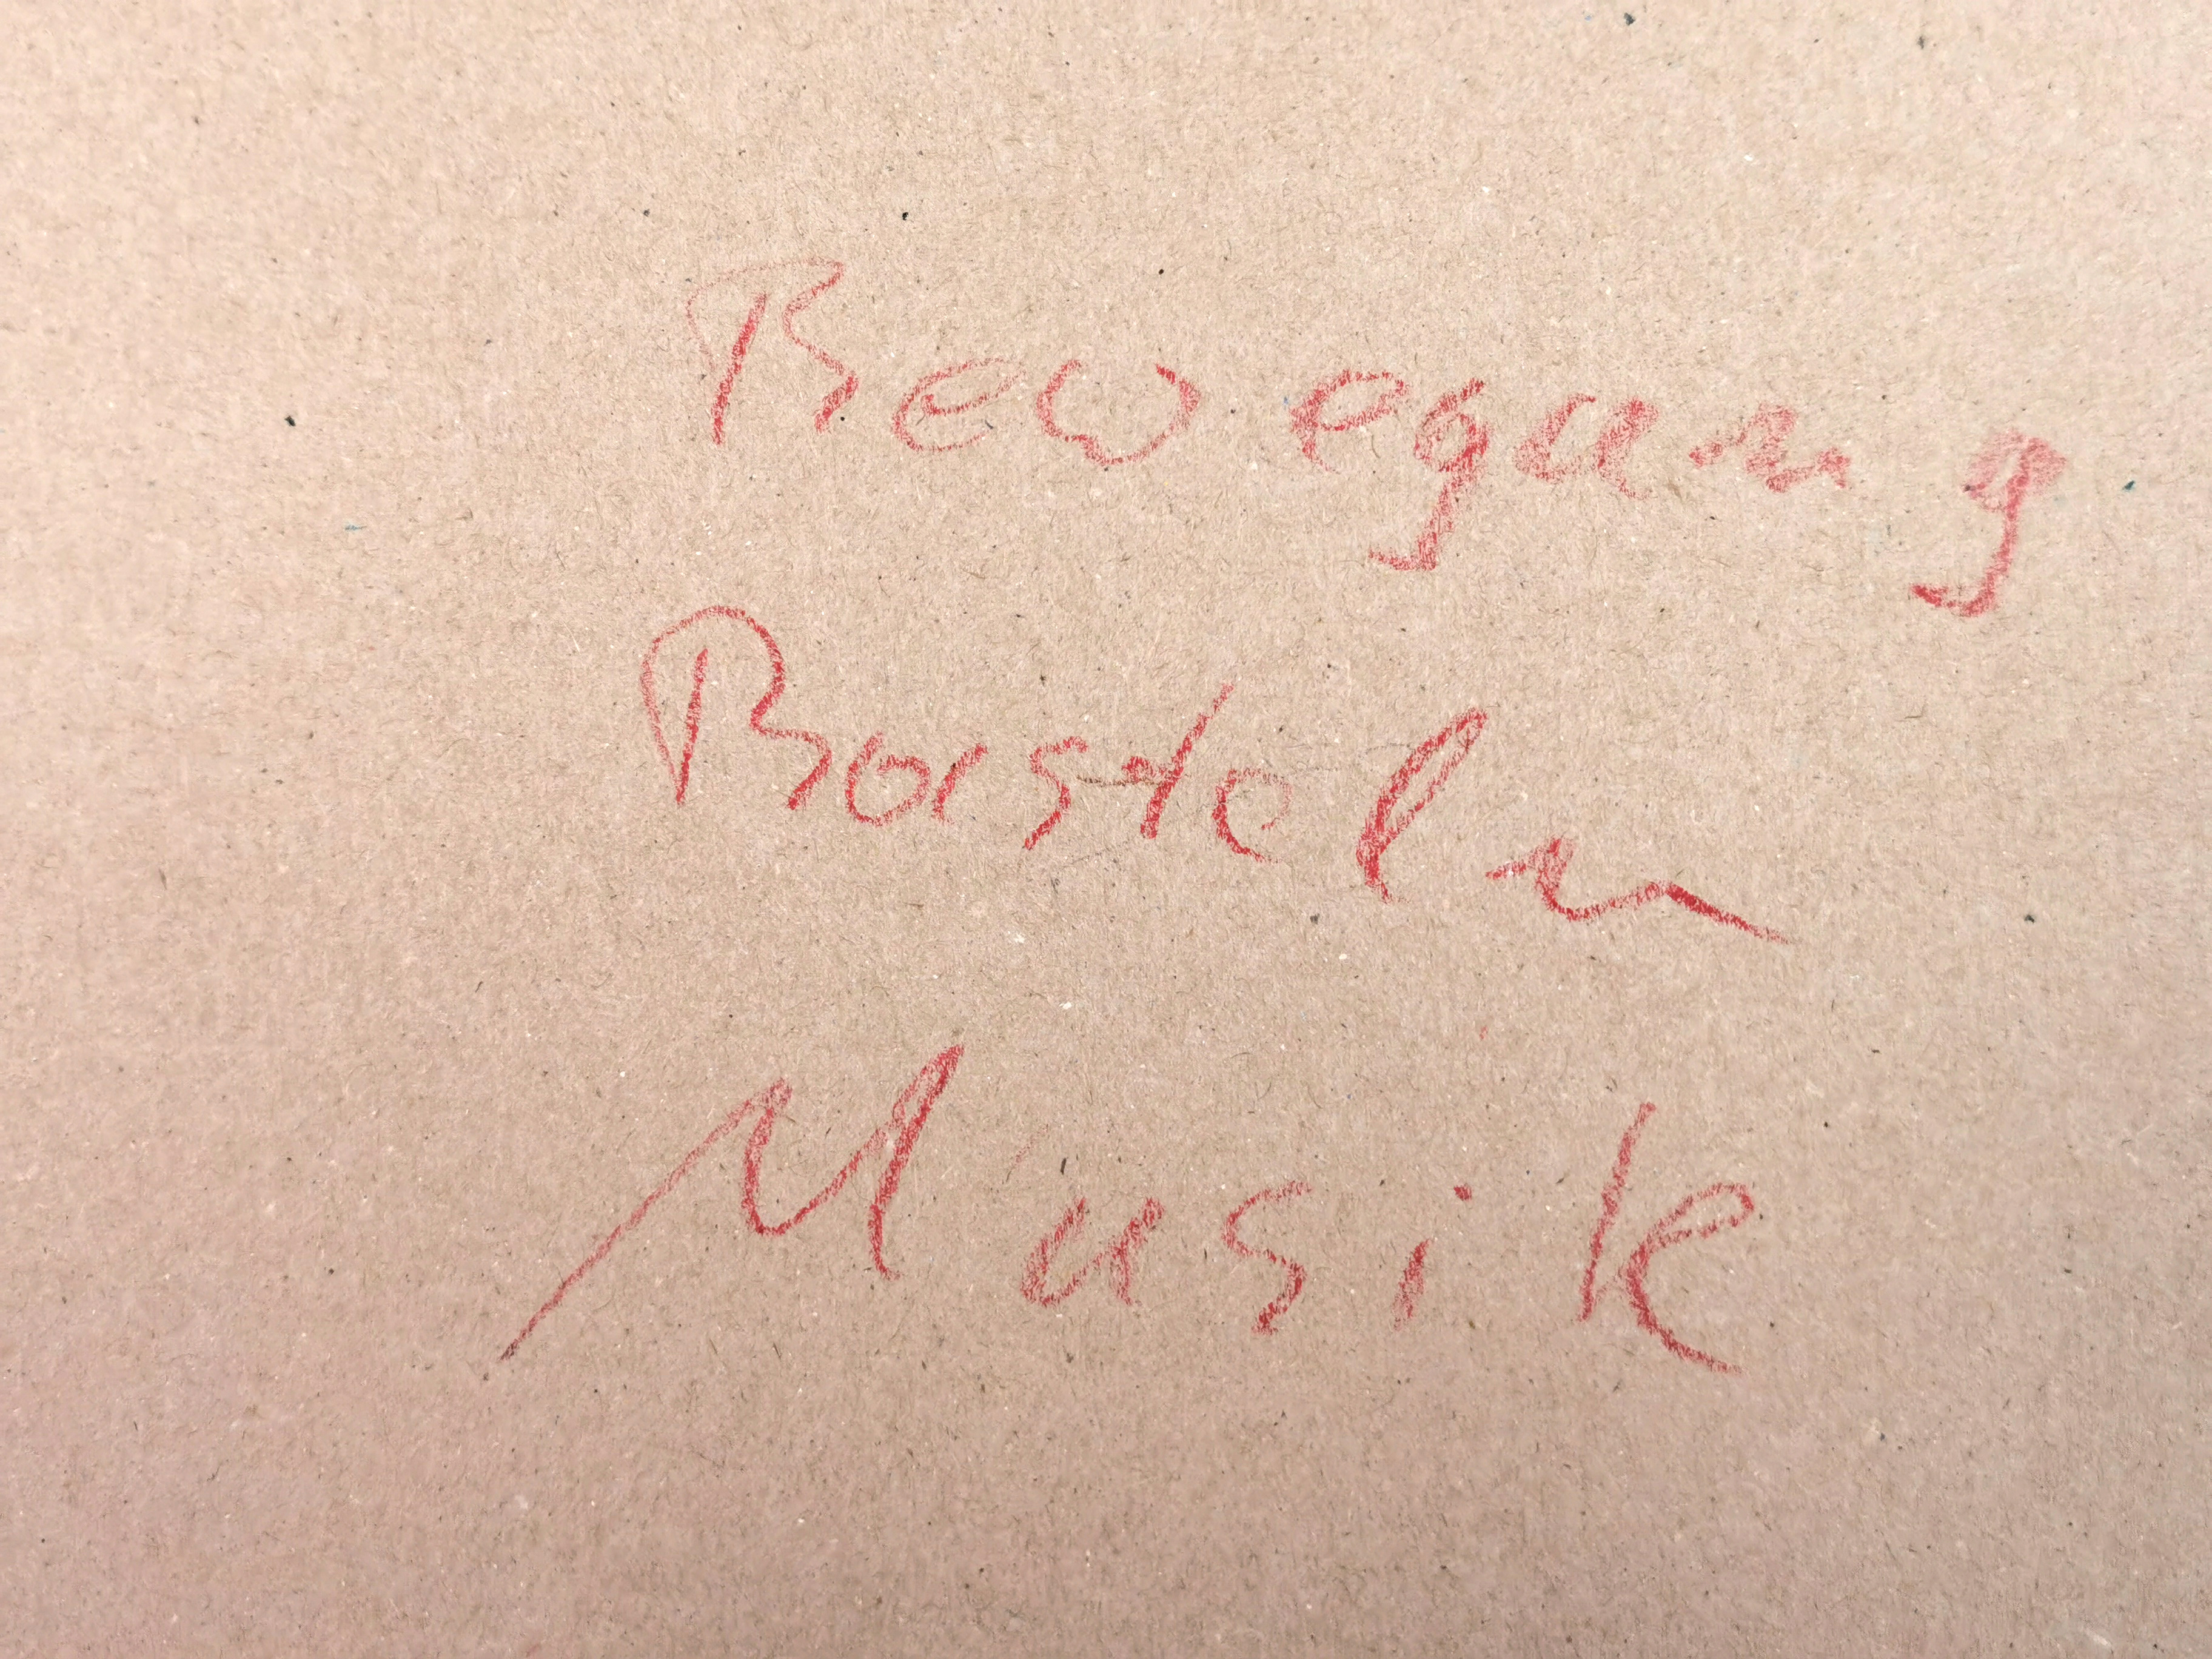 Bewegung
Basteln
Musik